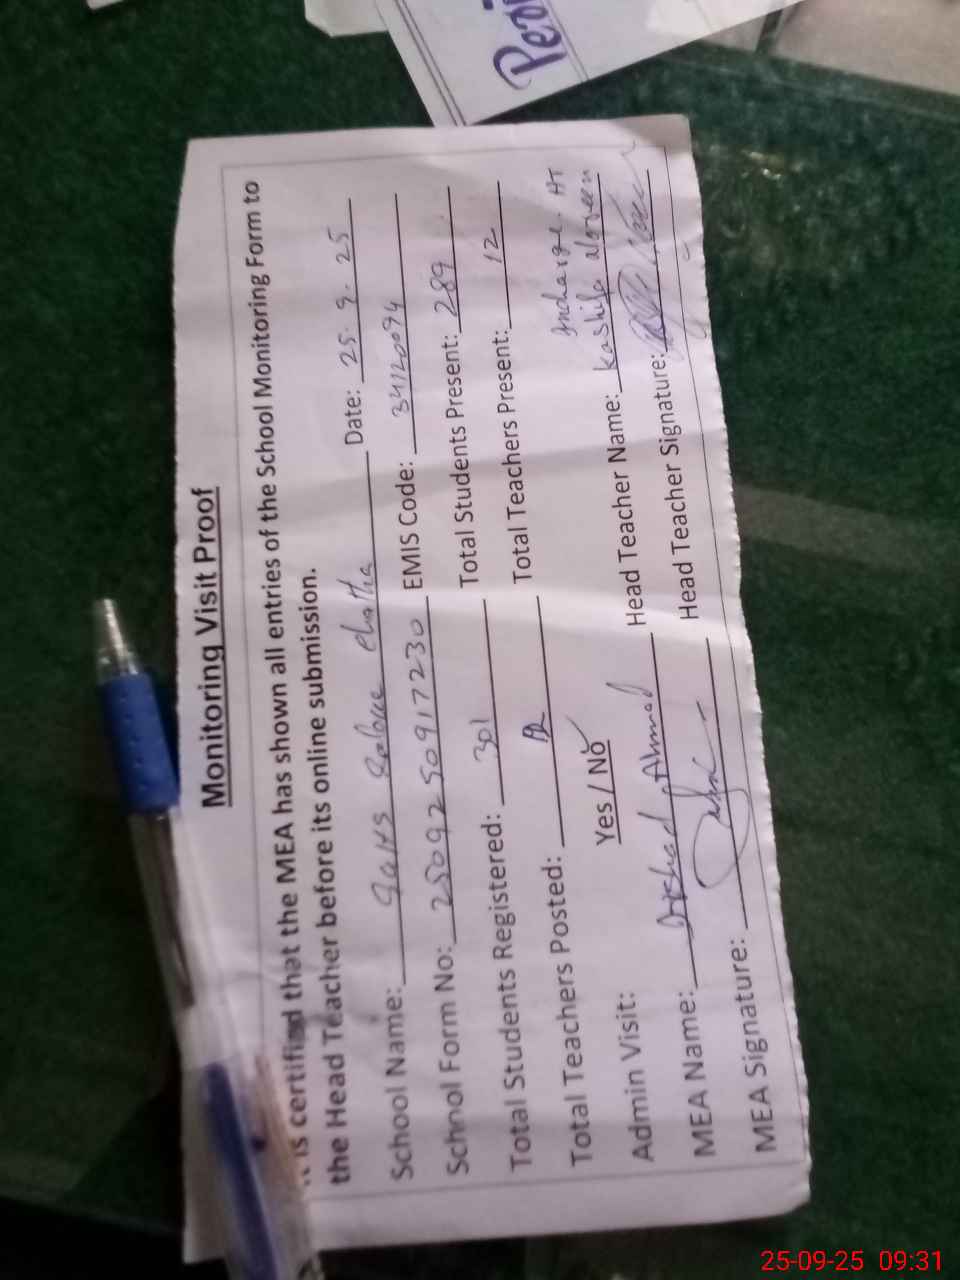 Peri
Monitoring Visit Proof
It is certified that the MEA has shown all entries of the School Monitoring Form to
the Head Teacher before its online submission.
School Name: GGHS Chatha Date: 25. 9. 25
School Form No: 2509250917230 EMIS Code: 34120094
Total Students Registered: 301 Total Students Present: 289
Total Teachers Posted: 12 Total Teachers Present: 12
Admin Visit: Yes / No Incharge HT
MEA Name: Arshad Ahmed Head Teacher Name: Kashifa
MEA Signature: Head Teacher Signature:
25-09-25 09:31